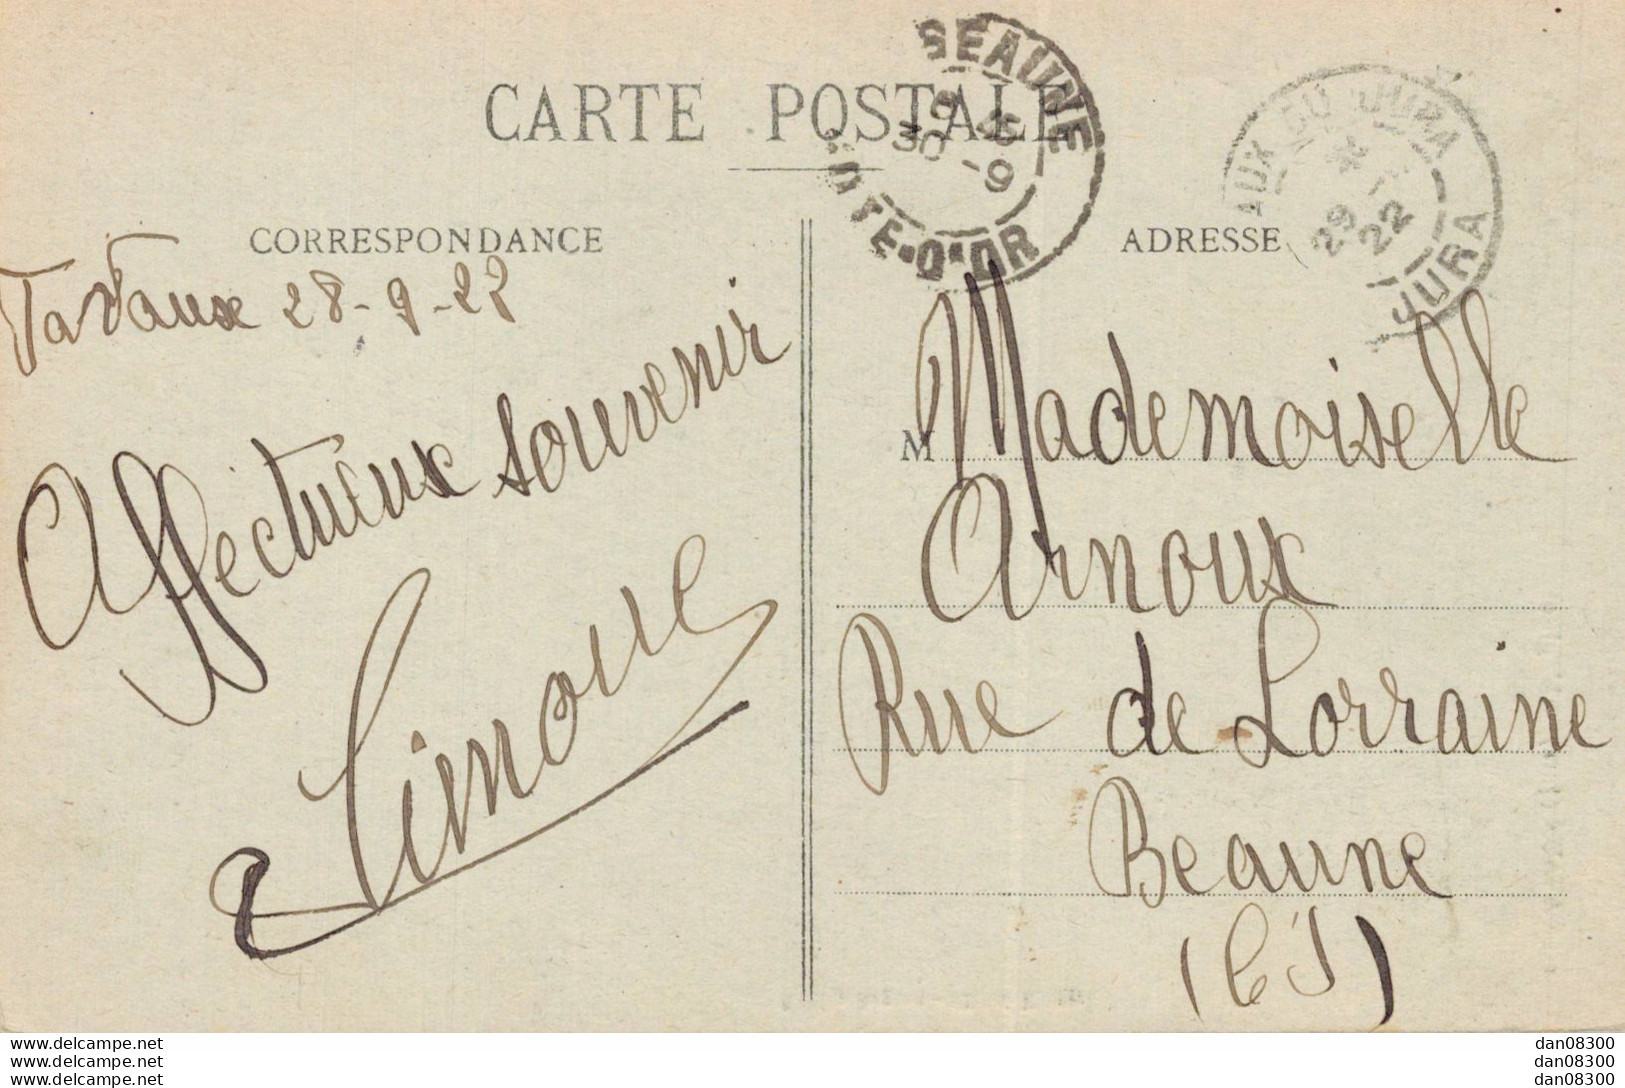 CARTE POSTALE
BEAUNE
CÔTE-D'OR
30 -9
AUX DU JURA
29
22
JURA
CORRESPONDANCE
ADRESSE
Tavaux 28-9-22
Affectueux souvenir
Simone
M Mademoiselle
Arnoux
Rue de Lorraine
Beaune
www.delcampe.net
www.delcampe.net
www.delcampe.net
dan08300
dan08300
dan08300